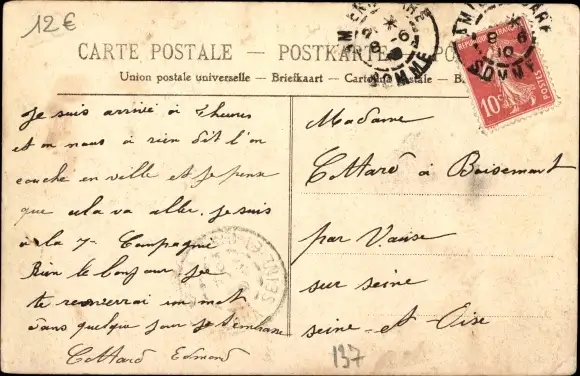 12€
CARTE POSTALE — POSTKARTE
Union postale universelle — Briefkaart — Cartolina postale
AMIENS GARE
8 6
10
SOMME
AMIENS GARE
8 6
10
SOMME
POSTES
10c
Je suis arrivé à 5 heures
et on nous à rien dit l'on
couche en ville et je pense
que cela va aller. je suis
à la 7e Compagnie
Rien le bonjour je
te renverrai un mot
dans quelque jour je t'embrasse
Cottard Edmond
SEINE ET
Madame
Cottard à Boisemont
par Vause
sur seine
seine-et-Oise
137